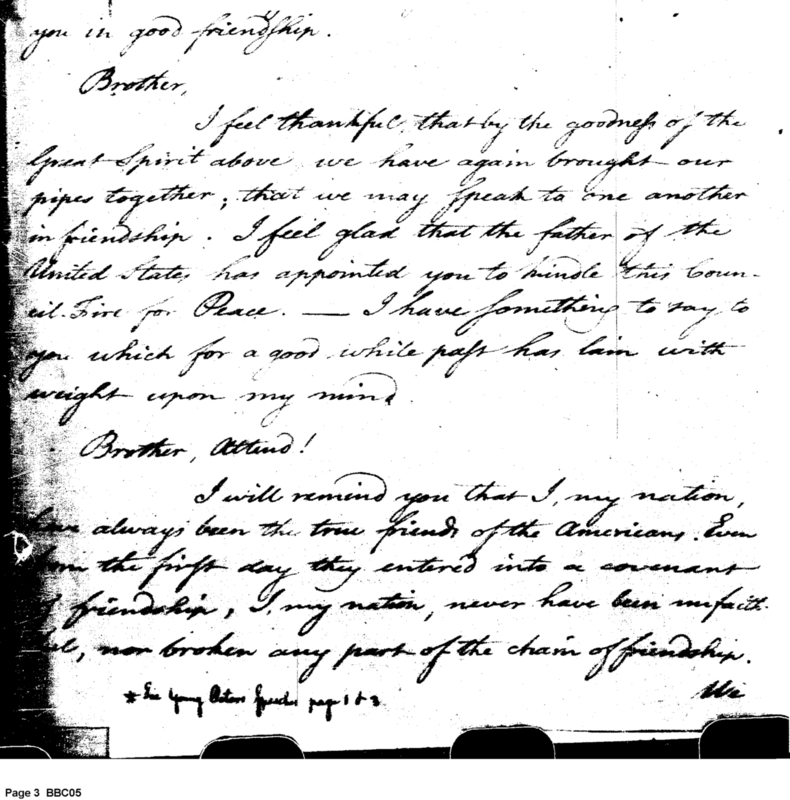 you in good friendship.
Brother,
I feel thankful, that by the goodness of the
Great Spirit above we have again brought our
pipes together; that we may speak to one another
in friendship. I feel glad that the father of the
United States has appointed you to kindle this Coun-
cil-Fire for Peace. — I have something to say to
you which for a good while past has lain with
weight upon my mind.
Brother, Attend!
I will remind you that I, my nation,
have always been the true friends of the Americans. Even
from the first day they entered into a covenant
of friendship, I, my nation, never have been unfaith-
ful, nor broken any part of the chain of friendship.
We
* See Young Speeches page 1 & 3
Page 3 BBC05